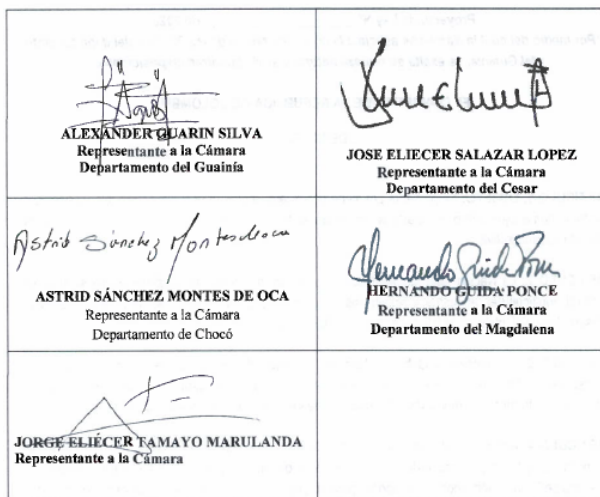 ALEXANDER GUARIN SILVA
Representante a la Cámara
Departamento del Guainía
JOSE ELIECER SALAZAR LOPEZ
Representante a la Cámara
Departamento del Cesar
Astrid Sánchez Montesdeoca
ASTRID SÁNCHEZ MONTES DE OCA
Representante a la Cámara
Departamento de Chocó
Hernando Guida Ponce
HERNANDO GUIDA PONCE
Representante a la Cámara
Departamento del Magdalena
JORGE ELIÉCER TAMAYO MARULANDA
Representante a la Cámara